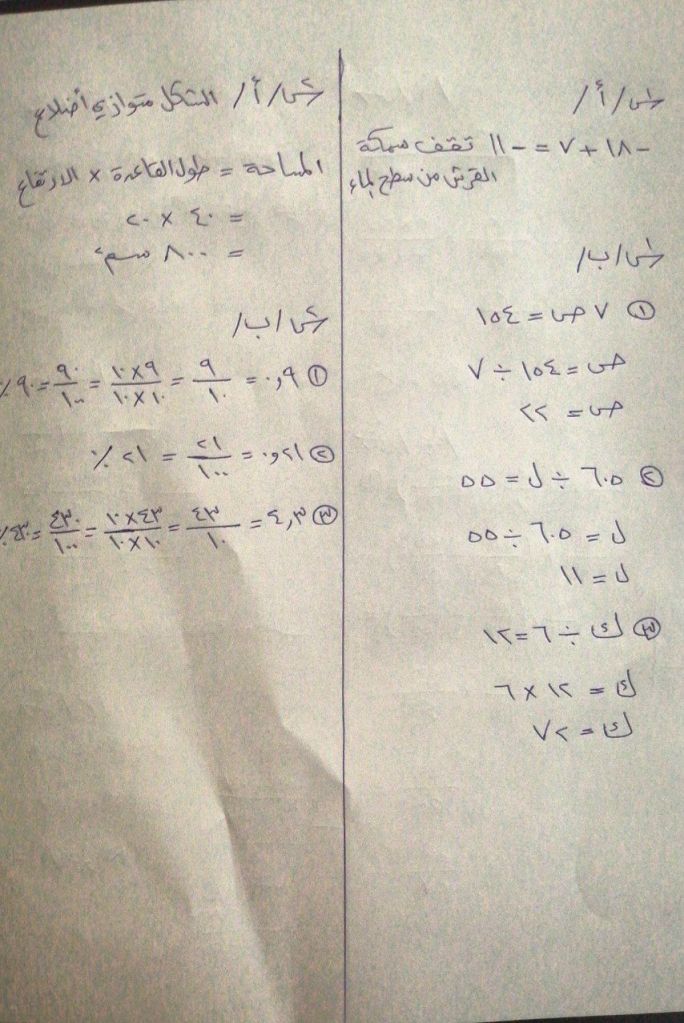 س٣/أ/
-١٨ + ٧ = -١١ تقف سمكة
القرش من سطح الماء
س٣/ب/
① ٧ ص = ١٥٤
ص = ١٥٤ ÷ ٧
ص = ٢٢
② ٦٠٥ ÷ ل = ٥٥
ل = ٦٠٥ ÷ ٥٥
ل = ١١
③ ك ÷ ٦ = ١٢
ك = ١٢ × ٦
ك = ٧٢
س٤/أ/ الشكل متوازي أضلاع
المساحة = طول القاعدة × الارتفاع
= ٤٠ × ٢٠
= ٨٠٠ سم٢
س٤/ب/
① ٠,٩ = ٩/١٠ = ٩×١٠/١٠×١٠ = ٩٠/١٠٠ = ٩٠٪
② ٠,٢١ = ٢١/١٠٠ = ٢١٪
③ ٤,٣ = ٤٣/١٠ = ٤٣×١٠/١٠×١٠ = ٤٣٠/١٠٠ = ٤٣٠٪